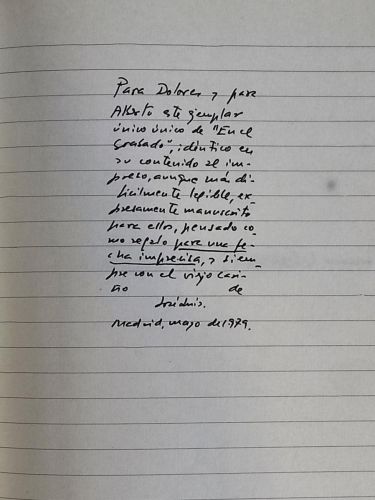 Para Dolores y para
Alberto este ejemplar
único único de "En el
Grabado", idéntico en
su contenido al im-
preso, aunque más di-
ficilmente legible, ex-
presamente manuscrito
para ellos, pensado co
mo regalo para una fe-
cha imprecisa, y siem
pre con el viejo cari-
ño de
José Luis.
Madrid, mayo de 1979.